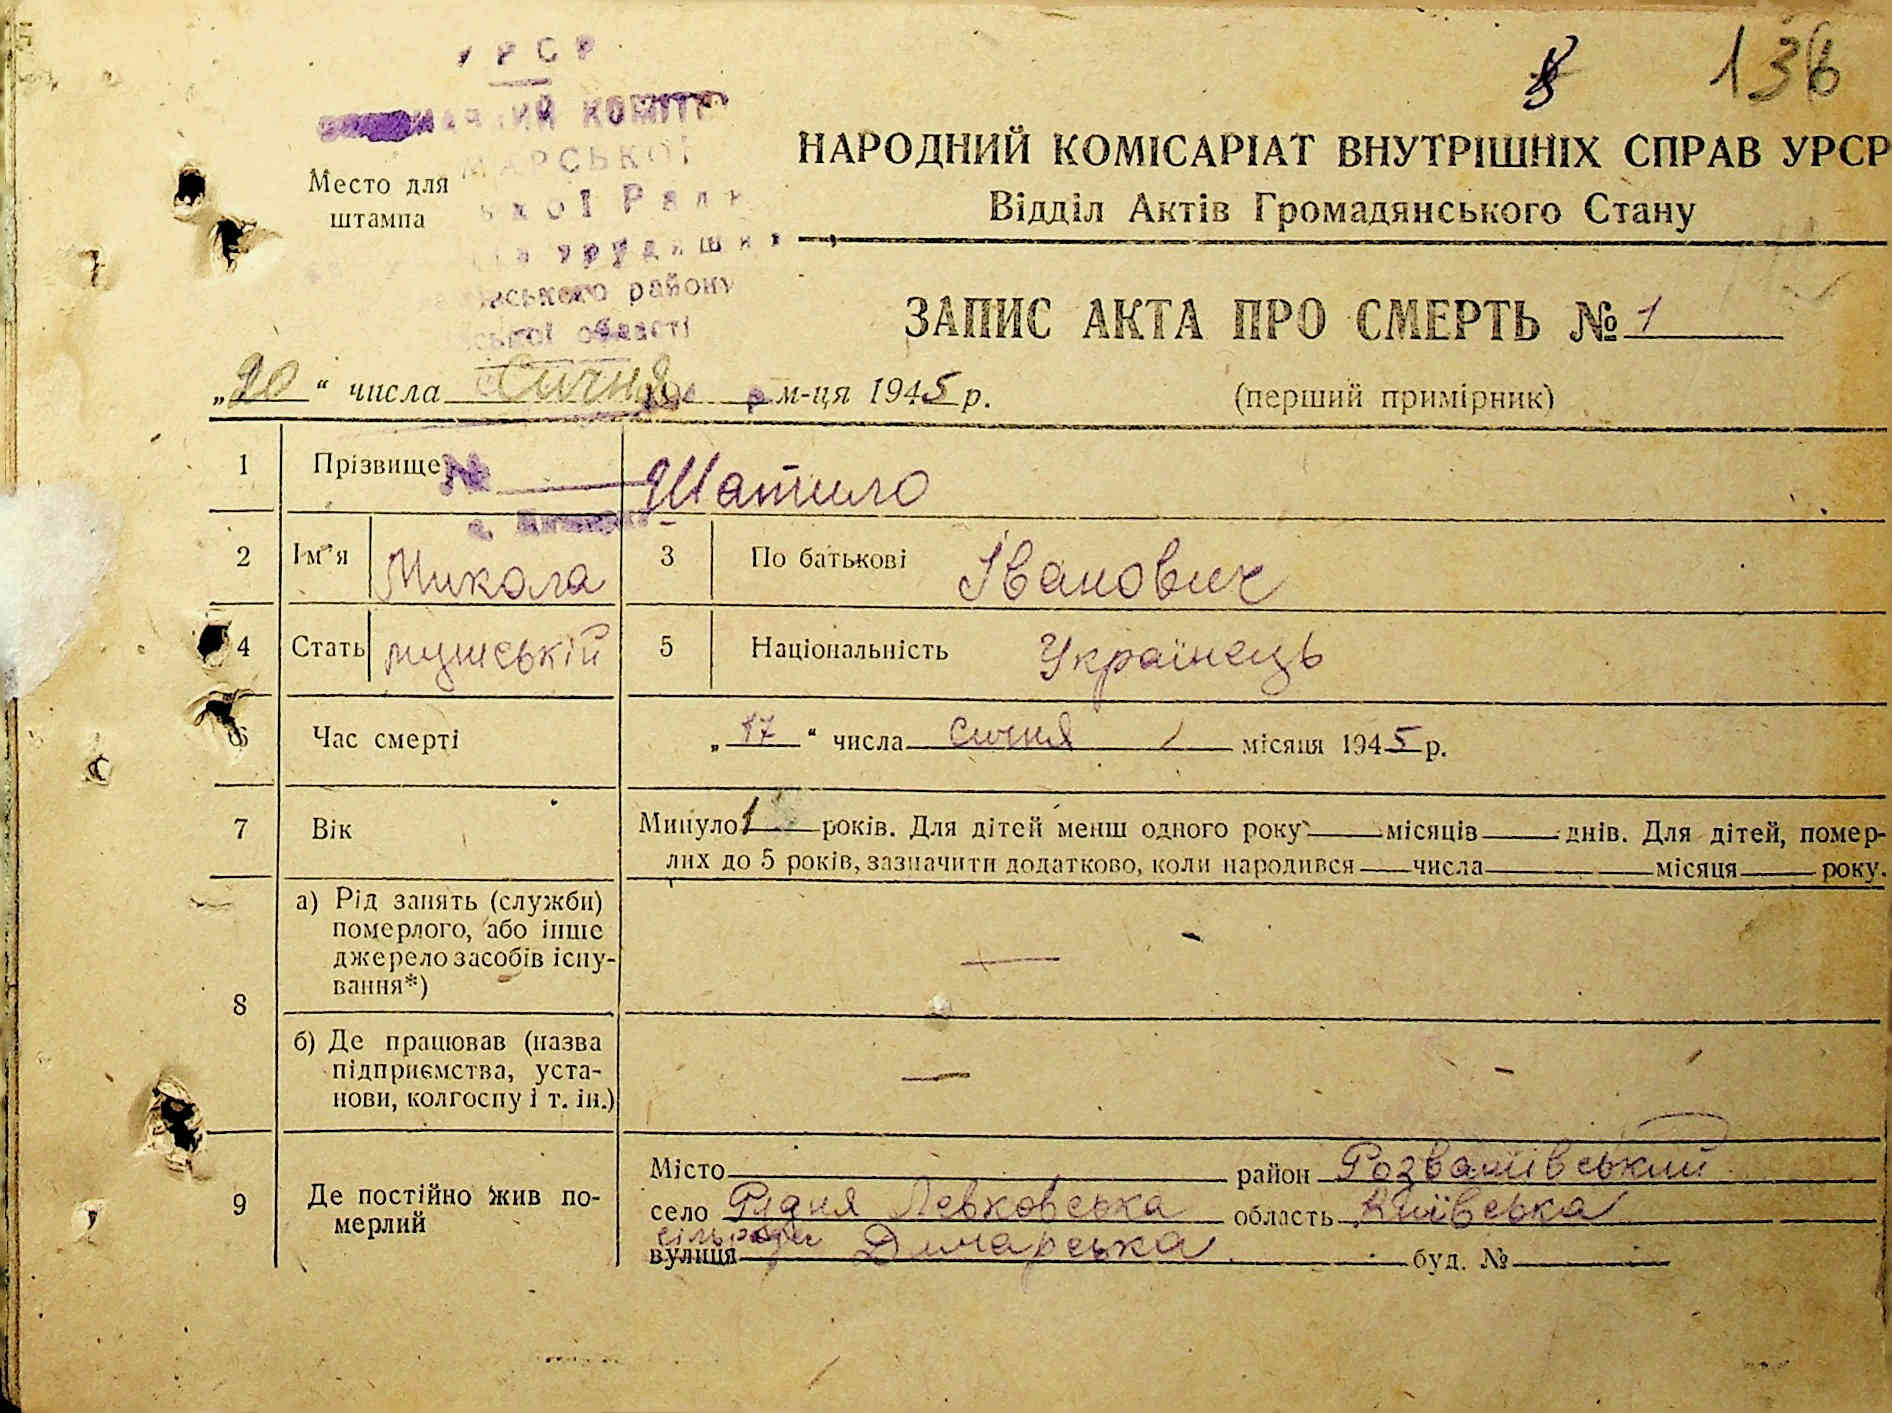 УРСР
КОМІТЕТ
МАРСЬКОЇ
Місто для
НАРОДНИЙ КОМІСАРІАТ ВНУТРІШНІХ СПРАВ УРСР
штампа
Відділ Актів Громадянського Стану
136
району
області
ЗАПИС АКТА ПРО СМЕРТЬ № 1
„20“ числа Січня м-ця 1945 р.
(перший примірник)
1 Прізвище № Шатило
2 Ім'я Микола 3 По батькові Іванович
4 Стать мужській 5 Національність Українець
6 Час смерті „17“ числа січня місяця 1945 р.
7 Вік Минуло 1 років. Для дітей менш одного року — місяців — днів. Для дітей, помер-
лих до 5 років, зазначити додатково, коли народився — числа — місяця — року.
8 а) Рід занять (служби)
померлого, або інше
джерело засобів існу-
вання*) —
б) Де працював (назва
підприємства, уста-
нови, колгоспу і т. ін.) —
9 Де постійно жив по-
мерлий
Місто район Розважівський
село Рудня Левковська область Київська
сільрада
вулиця Димарська буд. №